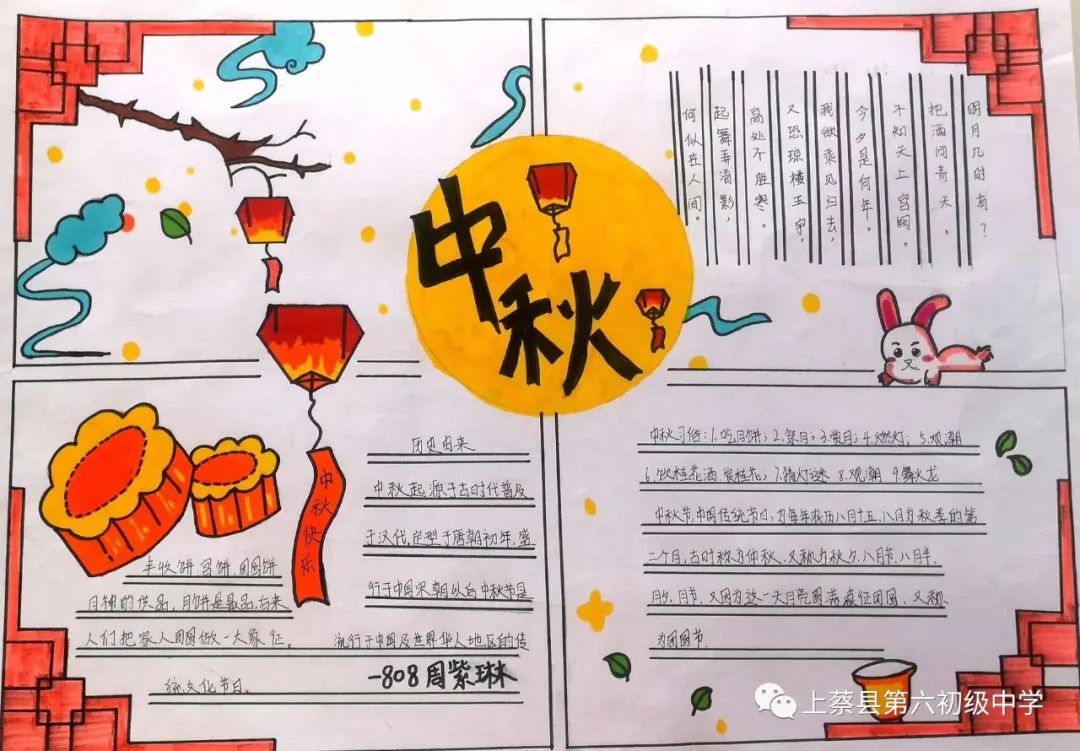 中秋
明月几时有？
把酒问青天。
不知天上宫阙。
今夕是何年。
我欲乘风归去，
又恐琼楼玉宇，
高处不胜寒。
起舞弄清影，
何似在人间。
中秋快乐
历史由来
中秋起源于古时代普及
于汉代，定型于唐朝初年，盛
行于中国宋朝以后中秋节是
流行于中国及世界华人地区的传
统文化节日。
丰收饼，宫饼，团圆饼
月神的供品，月饼是最品，后来
人们把家人团圆做一大象征。
-808 周紫琳
中秋习俗：1.吃月饼；2.祭月；3.赏月；4.燃灯；5.观潮
6.饮桂花酒，赏桂花；7.猜灯谜 8.观潮 9.舞火龙
中秋节，中国传统节日，为每年农历八月十五，八月为秋季的第
二个月，古时称为仲秋，又称为秋夕，八月节，八月半，
月夕，月节，又因为这一天月亮圆满象征团圆，又称
为团圆节
上蔡县第六初级中学